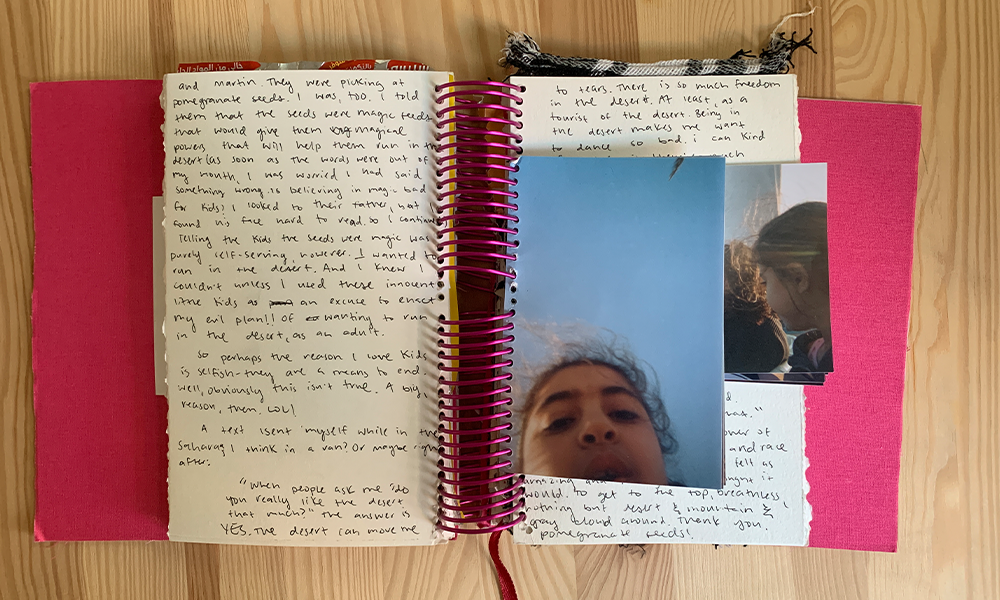 خالي من المواد الحا
and martin. They were picking at
pomegranate seeds. I was, too. I told
them that the seeds were magic seeds
that would give them magical
powers that will help them run in the
desert (as soon as the words were out of
my mouth, I was worried I had said
something wrong. is believing in magic bad
for kids? I looked to their father, but
found his face hard to read. so I continue
Telling the kids the seeds were magic was
purely self-serving, however. I wanted to
run in the desert. And I knew I
couldn't unless I used these innocent
little kids as an excuse to enact
my evil plan!! Of wanting to run
in the desert, as an adult.
So perhaps the reason I love kids
is selfish-they are a means to end.
well, obviously this isn't true. A big
reason, then. LOL!
A text I sent myself while in the
Sahara, I think in a van? Or maybe right
after:
"When people ask me "do
you really like the desert
that much?" The answer is
YES. The desert can move me
to tears. There is so much freedom
in the desert. At least, as a
tourist of the desert. Being in
the desert makes me want
to dance so bad. i can kind
"
ower of
and race
felt as
amazing and ught it
would. To get to the top, breathless
nothing but desert & mountain &
gray cloud around. Thank you,
pomegranate seeds!